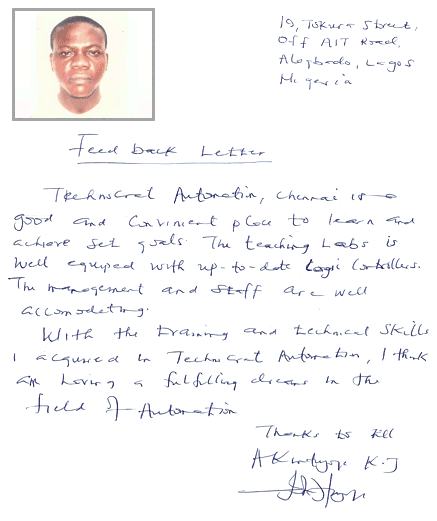 19, Tokura Street,
Off AIT Road,
Alagbado, Lagos
Nigeria
Feed back Letter
Technocrat Automation, Chennai is a
good and convinient place to learn and
achieve set goals. The teaching Labs is
well equiped with up-to-date Logic Controllers.
The management and staff are well
accomodating.
With the training and technical skills
I acquired in Technocrat Automation, I think
am having a fulfilling dreams in the
field of Automation
Thanks to all
K.J